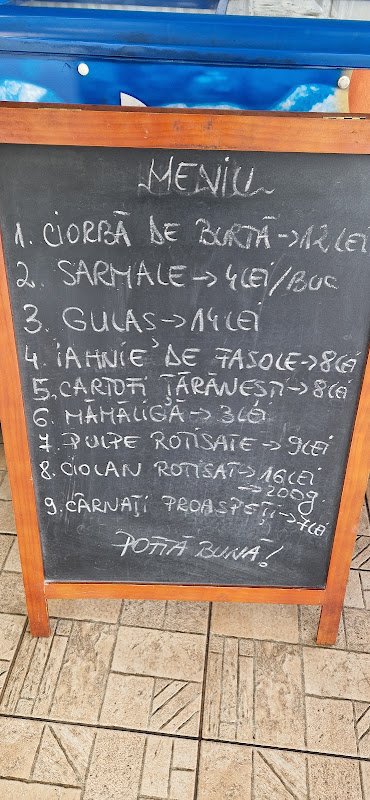 MENIU
1. CIORBĂ DE BURTĂ -> 12 LEI
2. SARMALE -> 4LEI/BUC
3. GULAȘ -> 14 LEI
4. IAHNIE DE FASOLE -> 8LEI
5. CARTOFI ȚĂRĂNEȘTI -> 8LEI
6. MĂMĂLIGĂ -> 3LEI
7. PULPE ROTISATE -> 9LEI
8. CIOLAN ROTISAT -> 16LEI
-> 200g.
9. CÂRNAȚI PROASPEȚI -> 7LEI
POFTĂ BUNĂ!